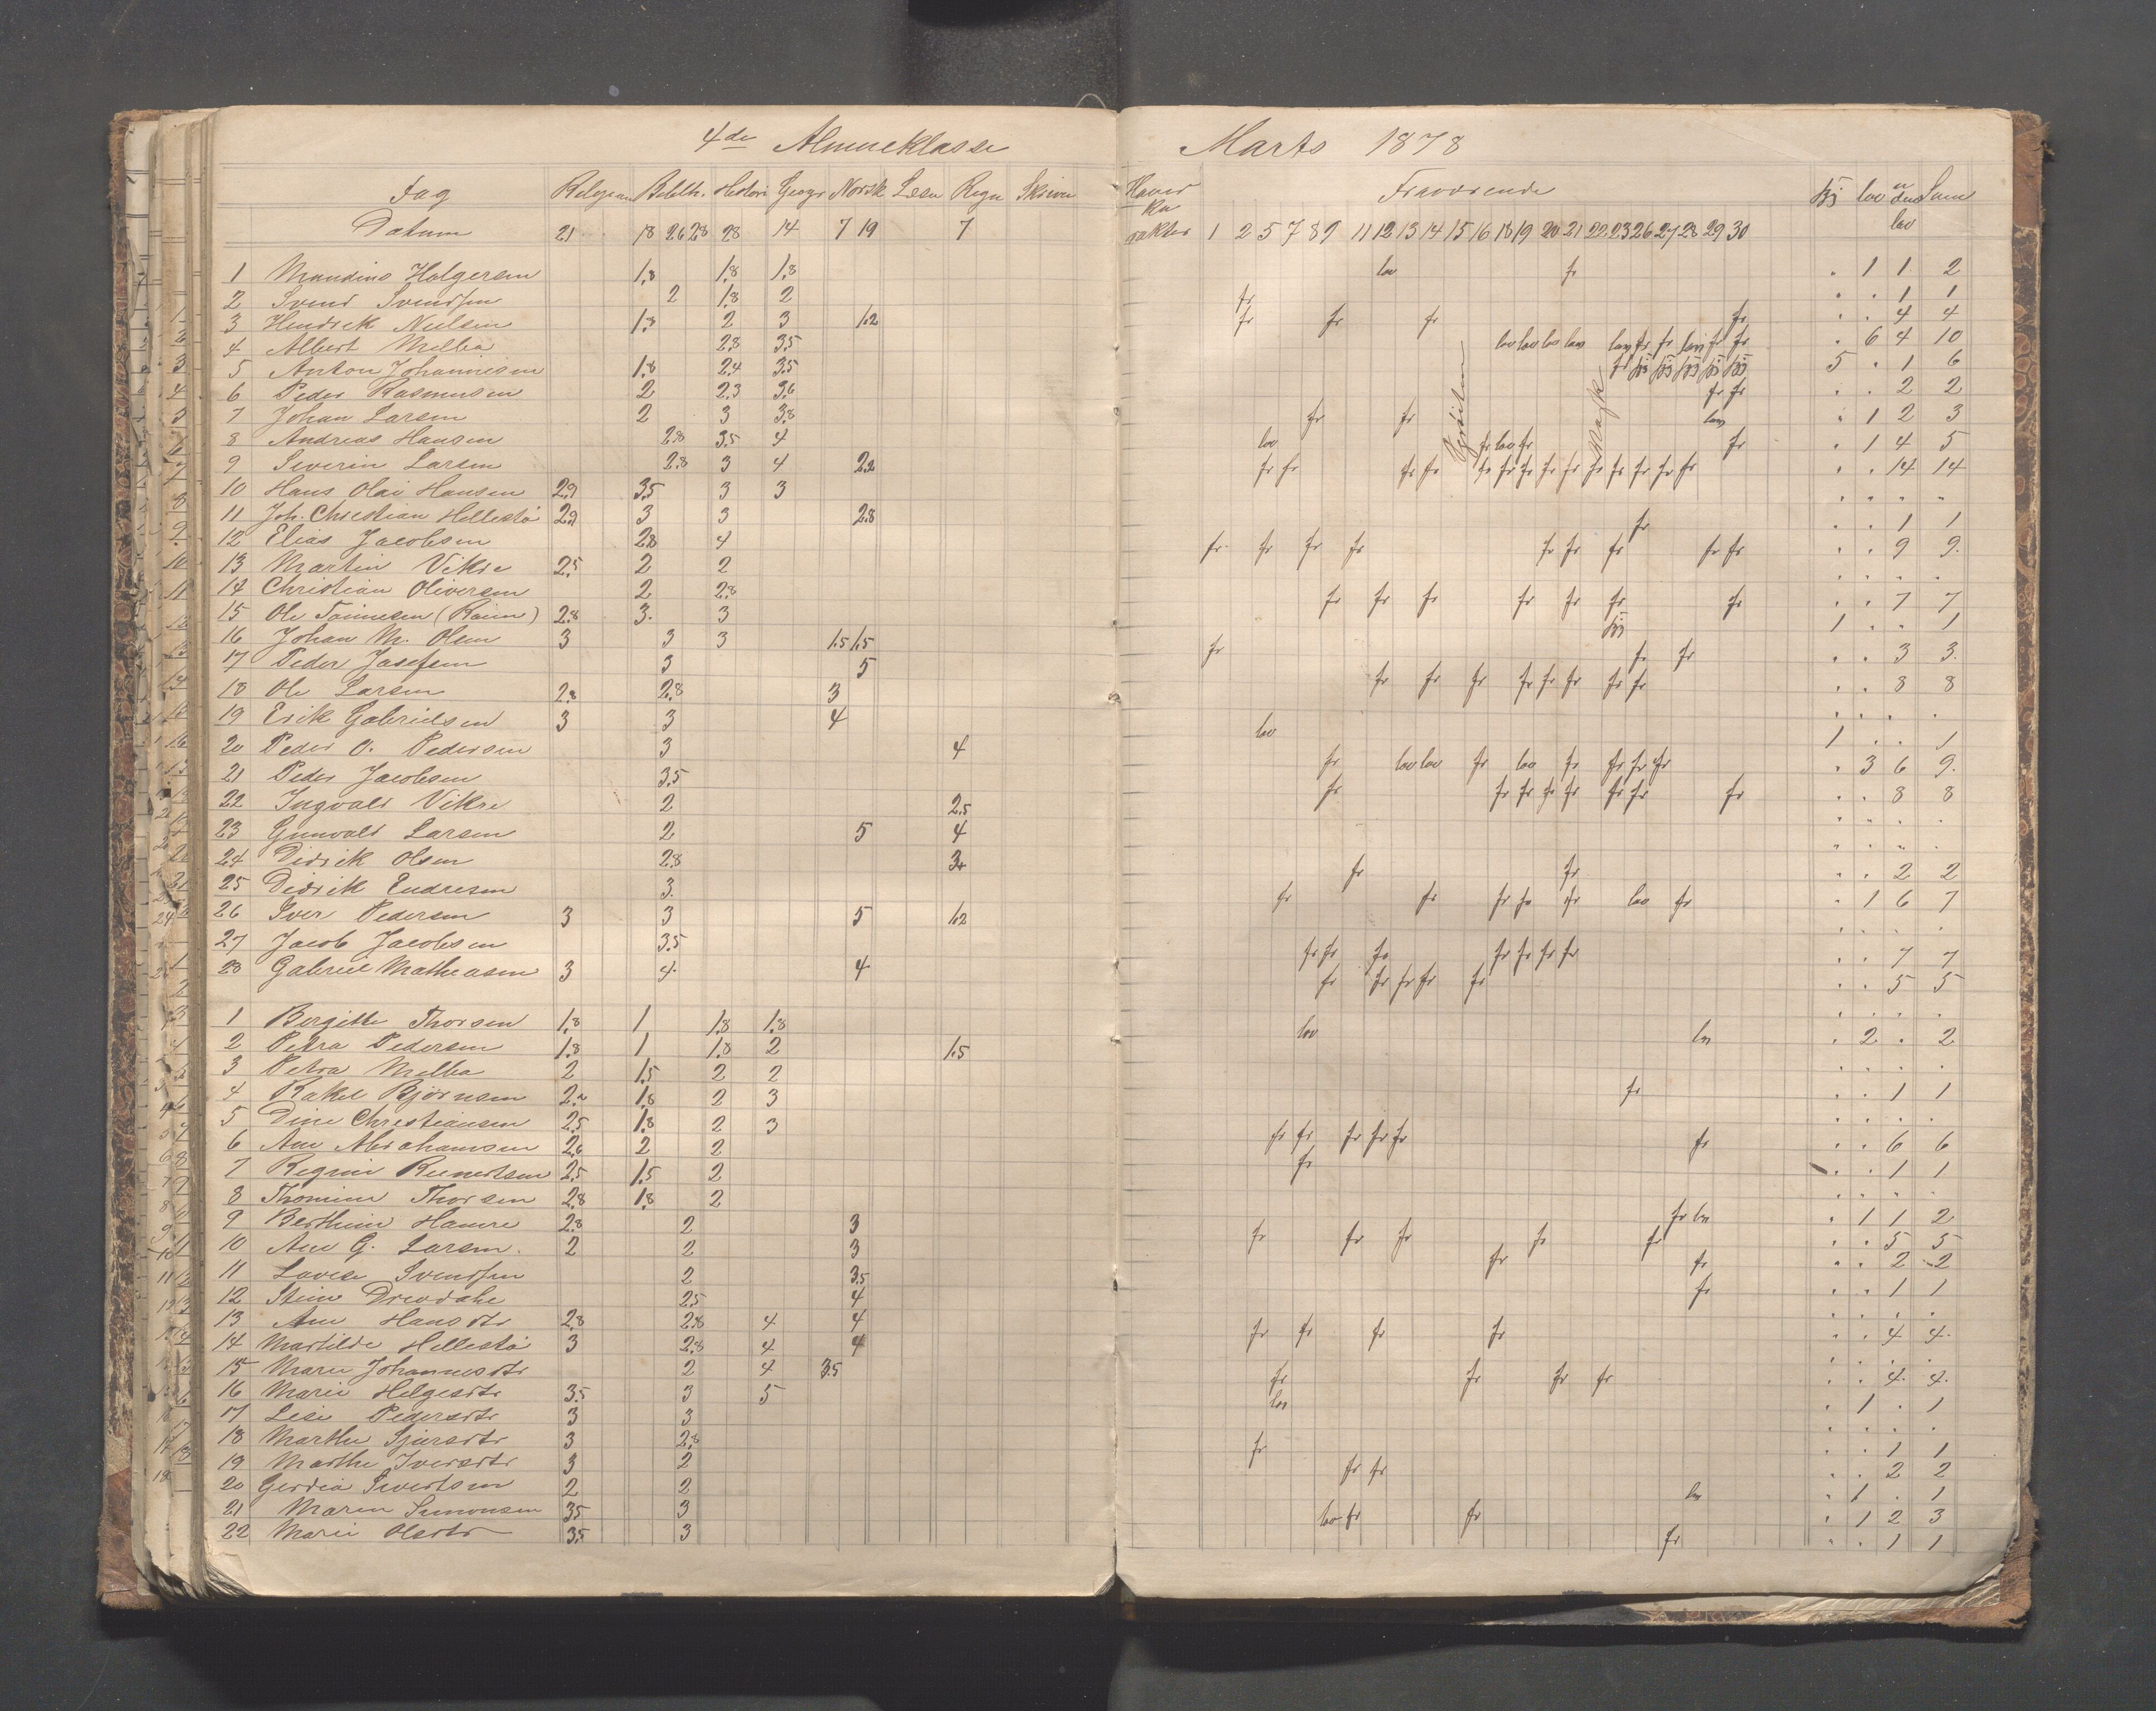 4de Almueklasse Marts 1878
Fag Religion Bibelh. Histori Geogr Norsk Læsn Regn Skrivn Fraværende lov Sum
Datum 21 18 26 28 28 14 7 19 7 1 2 5 7 8 9 11 12 13 14 15 16 18 19 20 21 22 23 26 27 28 29 30 lov
1 Mandius Holgersen 1,8 1,8 1,8 lov fr . 1 1 2
2 Svend Svendsen 2 1,8 2 fr . . 1 1
3 Hendrik Nielsen 1,8 2 3 1.2 fr fr fr fr . . 4 4
4 Albert Melbø 2,8 3,5 lov lov lov lov lov fr fr lov fr fr . 6 4 10
5 Anton Johannesen 1,8 2,4 3,5 fr 5 . 1 6
6 Peder Rasmussen 2 2,3 3,6 fr fr . . 2 2
7 Johan Larsen 2 3 3,8 fr fr lov . 1 2 3
8 Andreas Hansen 2,8 3,5 4 lov fr lov fr fr . 1 4 5
9 Severin Larsen 2,8 3 4 2,2 fr fr fr fr fr fr fr fr fr fr fr fr fr fr . . 14 14
10 Hans Olai Hansen 2,9 3,5 3 3 . . . .
11 Joh. Christian Hellestø 2,9 3 3 2,8 fr . . 1 1
12 Elias Jacobsen 2,8 4 fr fr fr fr fr fr fr fr fr . . 9 9.
13 Martin Vikre 2,5 2 2 . . . .
14 Christian Oliversen 2 2,8 fr fr fr fr fr fr fr . . 7 7
15 Ole Tønnesen 2,8 3. 3 1 . . 1
16 Johan M. Olsen 3 3 3 1.5 1.5 fr fr fr . . 3 3.
17 Peder Josefsen 3 5 fr fr fr fr fr fr fr fr . . 8 8
18 Ole Larsen 2,8 2,8 3 . . . .
19 Erik Gabrielsen 3 3 4 lov 1 . . 1
20 Peder O. Pedersen 3 4 fr lov lov fr lov fr fr fr fr . 3 6 9.
21 Peder Jacobsen 3,5 fr fr fr fr fr fr fr fr . . 8 8
22 Ingvald Vikre 2 2,5 . . . .
23 Gunvald Larsen 2 5 4 . . . .
24 Didrik Olsen 2,8 3+ fr fr . . 2 2
25 Didrik Endresen 3. fr fr fr fr fr lov fr . 1 6 7
26 Iver Pedersen 3 3 5 1.2 . . . .
27 Jacob Jacobsen 3,5 fr fr fr fr fr fr fr . . 7 7
28 Gabriel Mathiasen 3 4. 4 fr fr fr fr fr . . 5 5
1 Bergitte Thorsen 1,8 1 1,8 1,8 . . . .
2 Petra Pedersen 1,8 1 1,8 2 1.5 lov lov . 2 . 2
3 Petra Melbø 2 1,5 2 2 . . . .
4 Rakel Bjørnsen 2,2 1,8 2 3 fr . . 1 1
5 Dine Christiansen 2,5 1,8 2 3 . . . .
6 Ane Abrahamsen 2,6 2 2 fr fr fr fr fr fr . . 6 6
7 Regine Reinertsen 2,5 1,5 2 fr . . 1 1
8 Thomine Thorsen 2,8 1,8 2 . . . .
9 Berthine Hamre 2,8 2 3 fr lov . 1 1 2
10 Ane G. Larsen. 2 2 3 fr fr fr fr fr . . 5 5
11 Lovise Svendsen 2 3,5 fr fr . . 2 2
12 Stine Drevdahl 2,5 4 fr . . 1 1
13 Ane Hansdtr 2,8 2,8 4 4 . . . .
14 Martilde Hellestø 3 2,8 4 4 fr fr fr fr . . 4 4.
15 Maren Johannesdtr 2 4 3.5 . . . .
16 Marie Helgesdtr 3.5 3 5 fr fr fr fr . . 4. 4.
17 Lise Pedersdtr 3 3 lov . 1 . 1
18 Marthe Sjursdtr 3 2,8 . . . .
19 Marthe Iversdtr 3 2 fr . . 1 1
20 Gerdia Sivertsen 2 2 fr fr . . 2 2
21 Maren Simonsen 3.5 3 lov . 1 . 1
22 Marie Olsdtr 3.5 3 lov fr fr . 1 2 3
fr . . 1 1